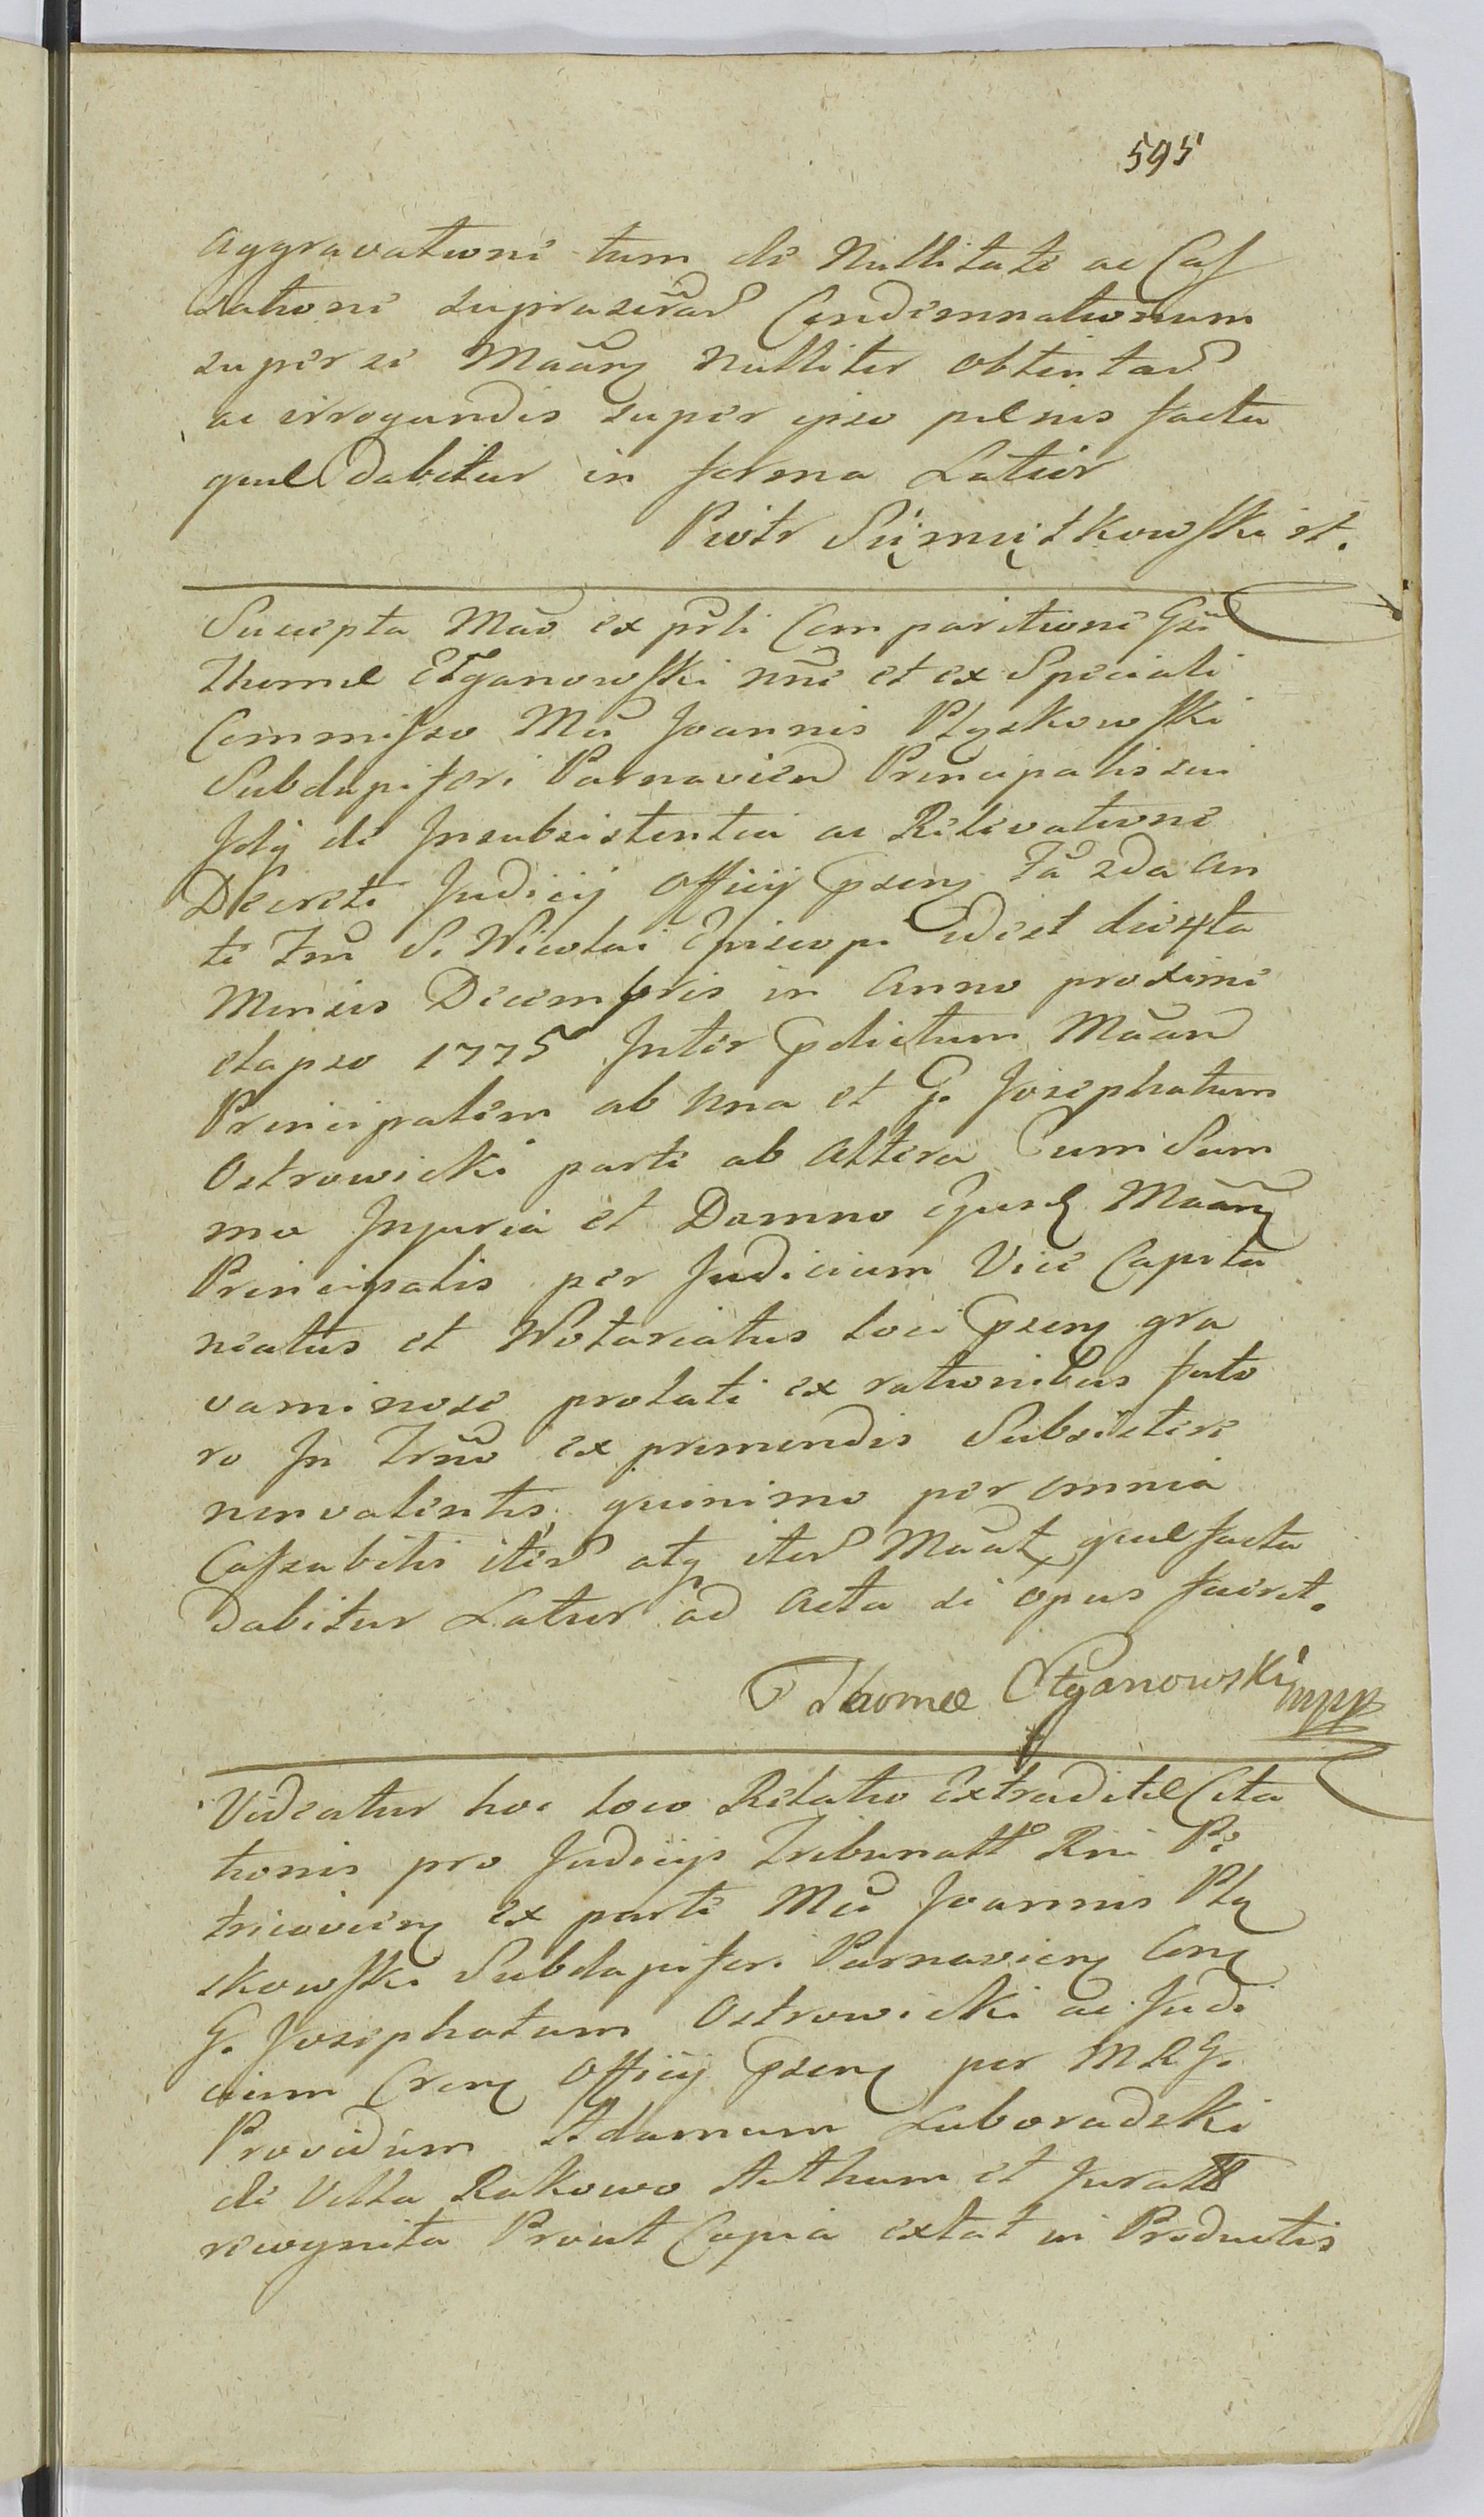 595
Aggravatione tum de Nullitate ac Cas
satione suprascrar Condemnationum
super se Maãrŋ Nulliter obtentar
ac irrogandis super ipso pœnis facta
quæ dabitur in forma Latior
Piotr
Suscepta Mão ex prsti Comparitione Gsi
Thomæ Ołganowski nne et ex Speciali
Commisso Mci Joannis Płyskowski
Subdapiferi Parnavien Principalis sui
de Insubsistentia ac Relevatione
Decreti Judicij Officij psens Fa 2da An
te Fm S. Nicolai Episcopi id est die 4ta
Mensis Decembris in Anno proxime
elapso 1775 Inter pdictum Mãan
Principalem ab una et G. Josephatum
Ostrowicki parte ab Altera Cum Sum
mo Injuria et Damno Ejusd Mãan
Principalis per Judicium Vice Capita
neatus et Notariatus loci psens gra
vaminose prolati ex rationibus futo
ro In Trno ex primendis Subsistere
non valentis, quinimo per omnia
Cassabilis iter atq iter Mãat quæ facta
Dabitur Latior ad Acta si opus fuerit.
Thomæ Ołganowski mpp
Videatur hoc loco Relatio Extraditæ Cita
tionis pro Judicijs Tribunall Rni Pe
tricovien ex parte Mci Joannis Pły
skowski Subdapiferi Parnavien Con
G. Josephatum Ostrowicki ac Judi
cium Cren Officij psens per M R G.
Providum Adamum Luboradzki
de Villa Rakowo Authum et Juratt
recognita Prout Copia extat in Productis